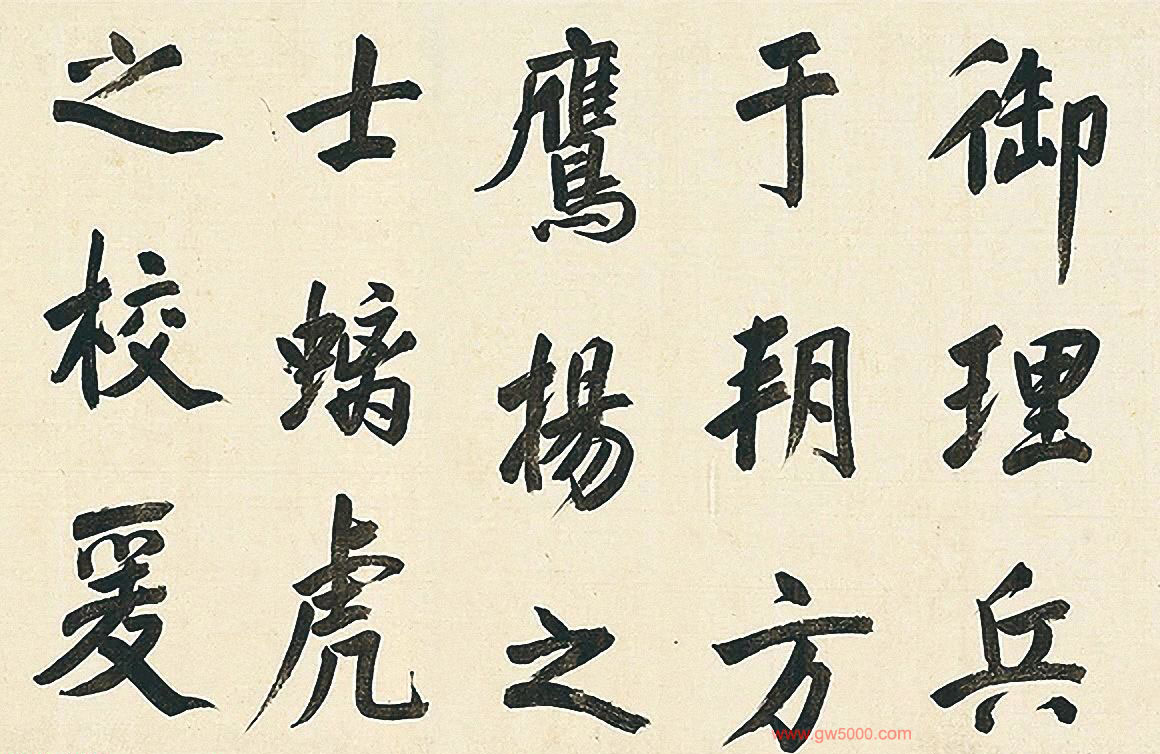 御理兵
于朔方
鷹揚之
士螭虎
之校爰
www.gw5000.com